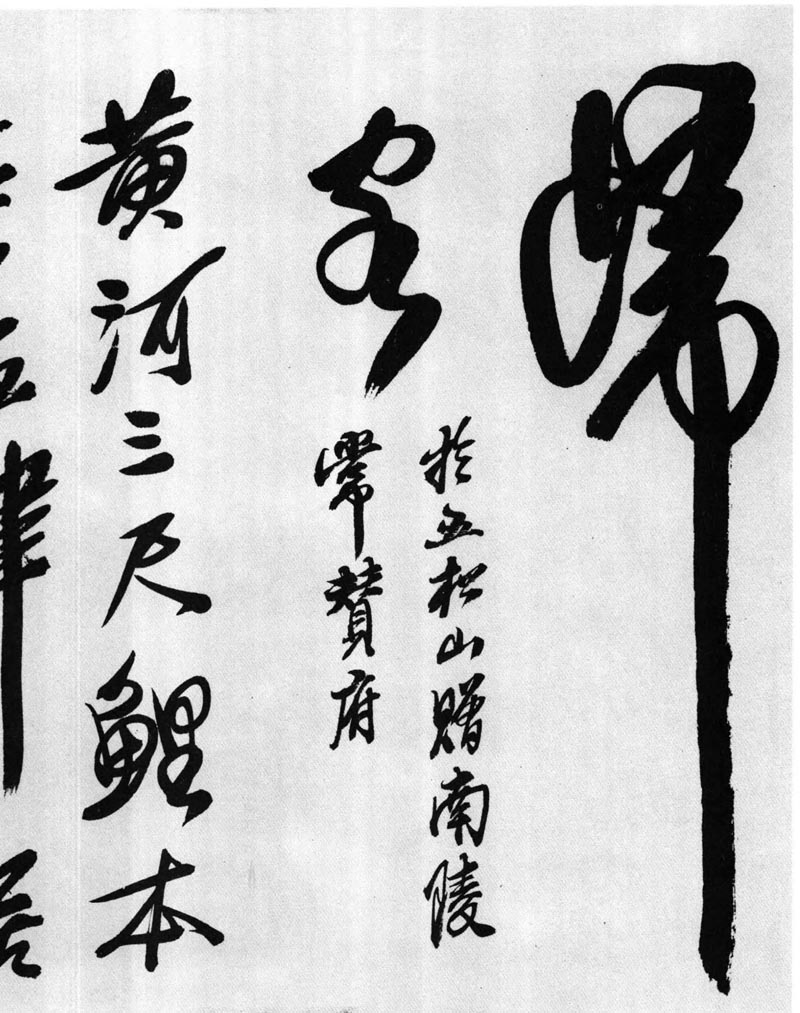 歸
客
於五松山贈南陵
常贊府
黄河三尺鯉本